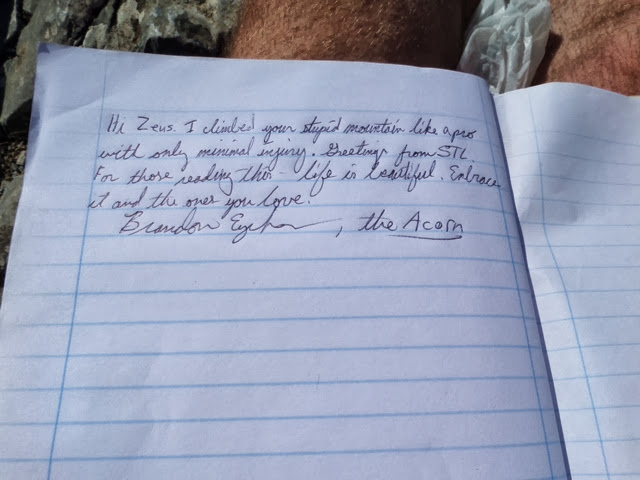 Hi Zeus. I climbed your stupid mountain like a pro
with only minimal injury. Greetings from STL.
For those reading this - life is beautiful. Embrace
it and the ones you love.
Brandon , the Acorn